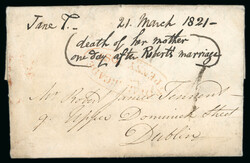 Jane T.— 21. March 1821—
death of her mother
one day after Robert's marriage
Mr Robt James
9 Upper Dominick Street
Dublin